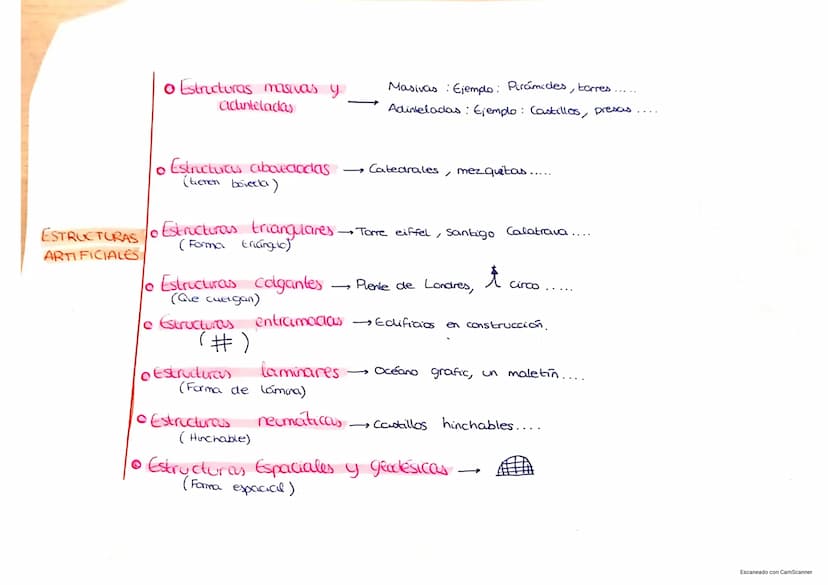 Estructuras masivas y
adinteladas
→ Masivas : Ejemplo : Pirámides, torres.....
Adinteladas : Ejemplo : Castillos, presas ....
Estructuras abovedadas → Catedrales, mezquitas.....
(tienen bóveda)
ESTRUCTURAS
ARTIFICIALES
Estructuras triangulares → Torre eiffel, Santigo Calatrava ....
(Forma triángulo)
Estructuras colgantes → Puente de Londres, circo .....
(Que cuelgan)
Estructuras entramadas → Edificios en construcción.
(#)
Estructuras laminares → Océano grafic, un maletín....
(Forma de lámina)
Estructuras neumáticas → Castillos hinchables....
(Hinchable)
Estructuras Espaciales y Geodésicas →
(Forma espacial)
Escaneado con CamScanner